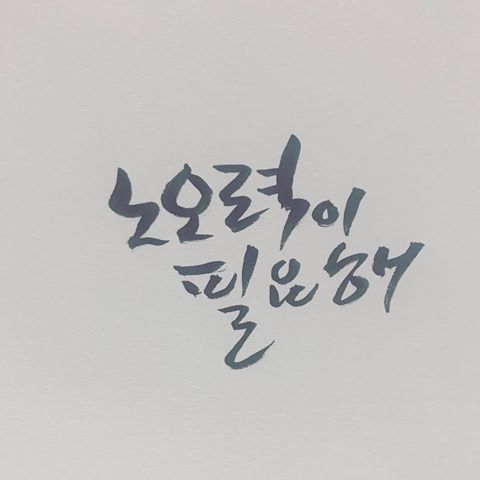 노오력이
필요해